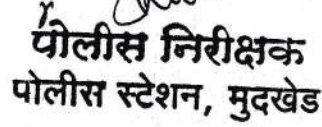 पोलीस निरीक्षक
पोलीस स्टेशन, मुदखेड